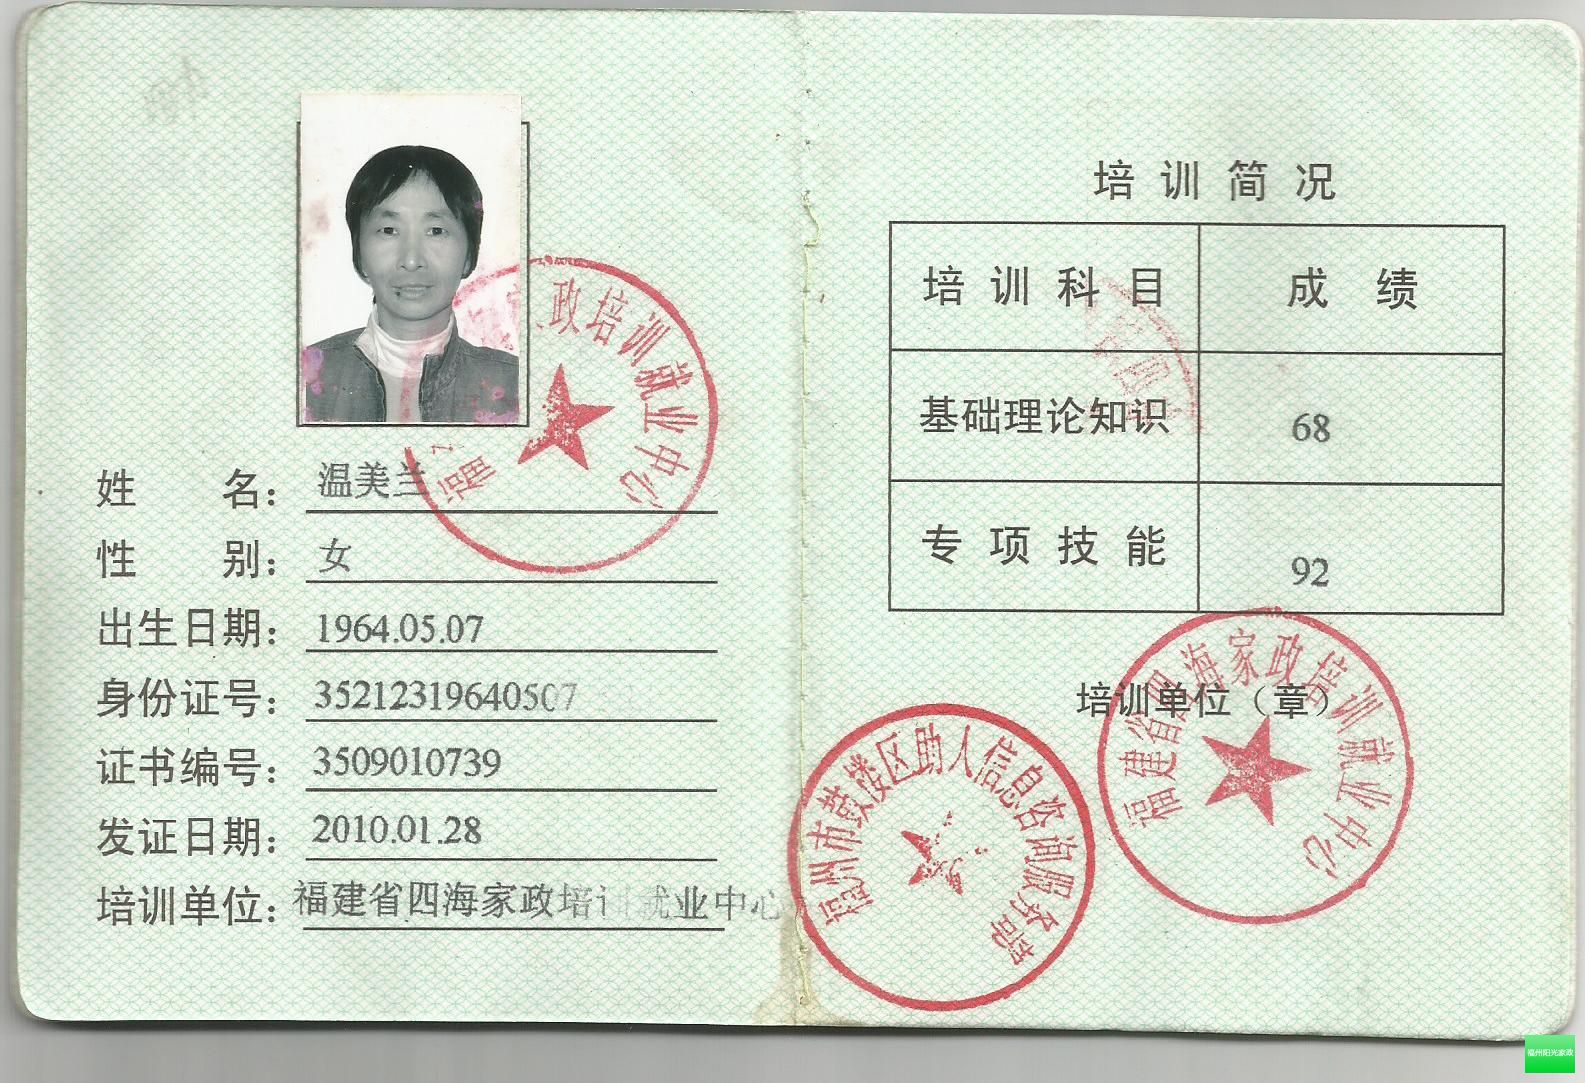 姓 名：温美兰
性 别：女
出生日期：1964.05.07
身份证号：35212319640507
证书编号：3509010739
发证日期：2010.01.28
培训单位：福建省四海家政培训就业中心
福 政培训就业中心
培训简况
培训科目 成绩
基础理论知识 68
专项技能 92
培训单位（章）
福建省四海家政培训就业中心
福州市鼓楼区助人信息咨询服务部
福州阳光家政